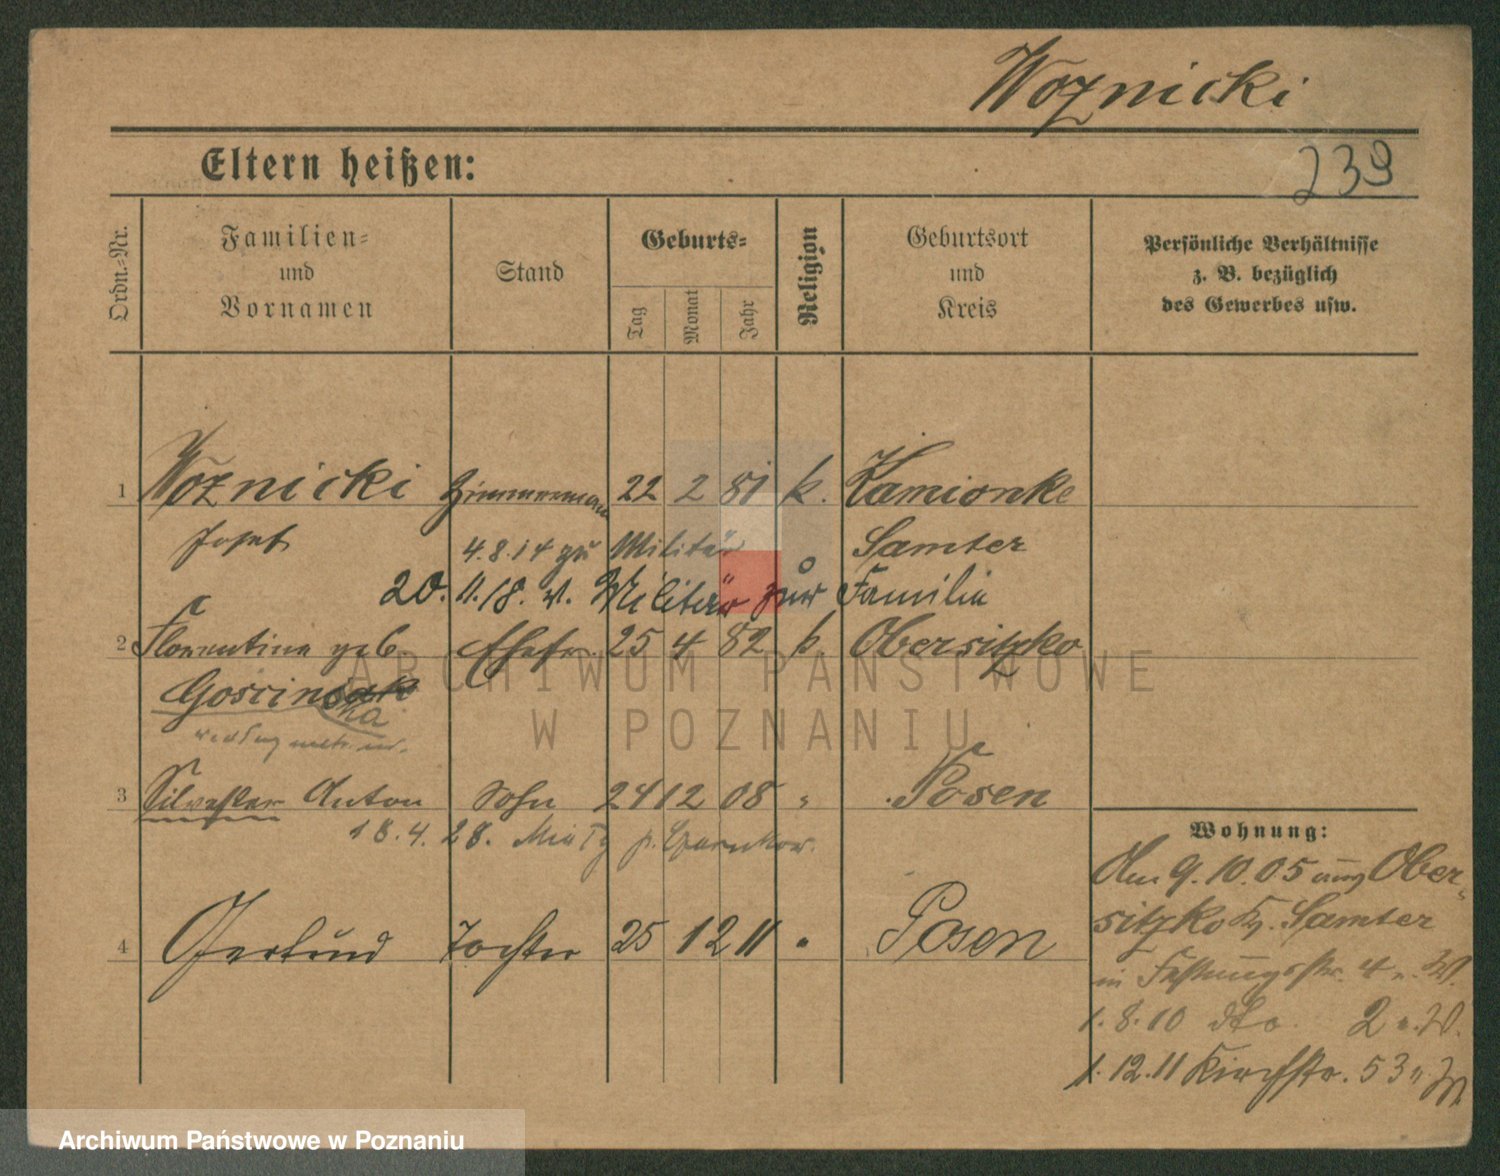 Woznicki
Eltern heißen:
239
Ordn.-Nr.
Familien-
und
Vornamen
Stand
Geburts-
Tag
Monat
Jahr
Religion
Geburtsort
und
Kreis
Persönliche Verhältnisse
z. B. bezüglich
des Gewerbes usw.
1 Woznicki Zimmermann 22 2 81 k. Kamionke
Josef 4.8.14 zu Militär Samter
20.11.18. v. Militär zur Familie
2 Florentine geb. Ehefr. 25 4 82 k. Obersitzko
Gościniak
ka
według metr. ur.
3 Silvester Anton Sohn 24 12 08 " Posen
18.4.28. p. Czarnków.
4 Gertrud Tochter 25 12 11 " Posen
Wohnung:
Am 9.10.05 aus Ober-
sitzko Kr. Samter
in Festungsstr. 4 b. W.
1.8.10 dto. 2 b. W.
1.12.11 Kirchstr. 53
ARCHIWUM PAŃSTWOWE
W POZNANIU
Archiwum Państwowe w Poznaniu